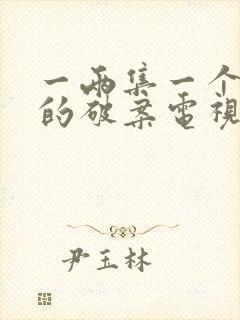 一兩集一个
的破案電視
尹玉林